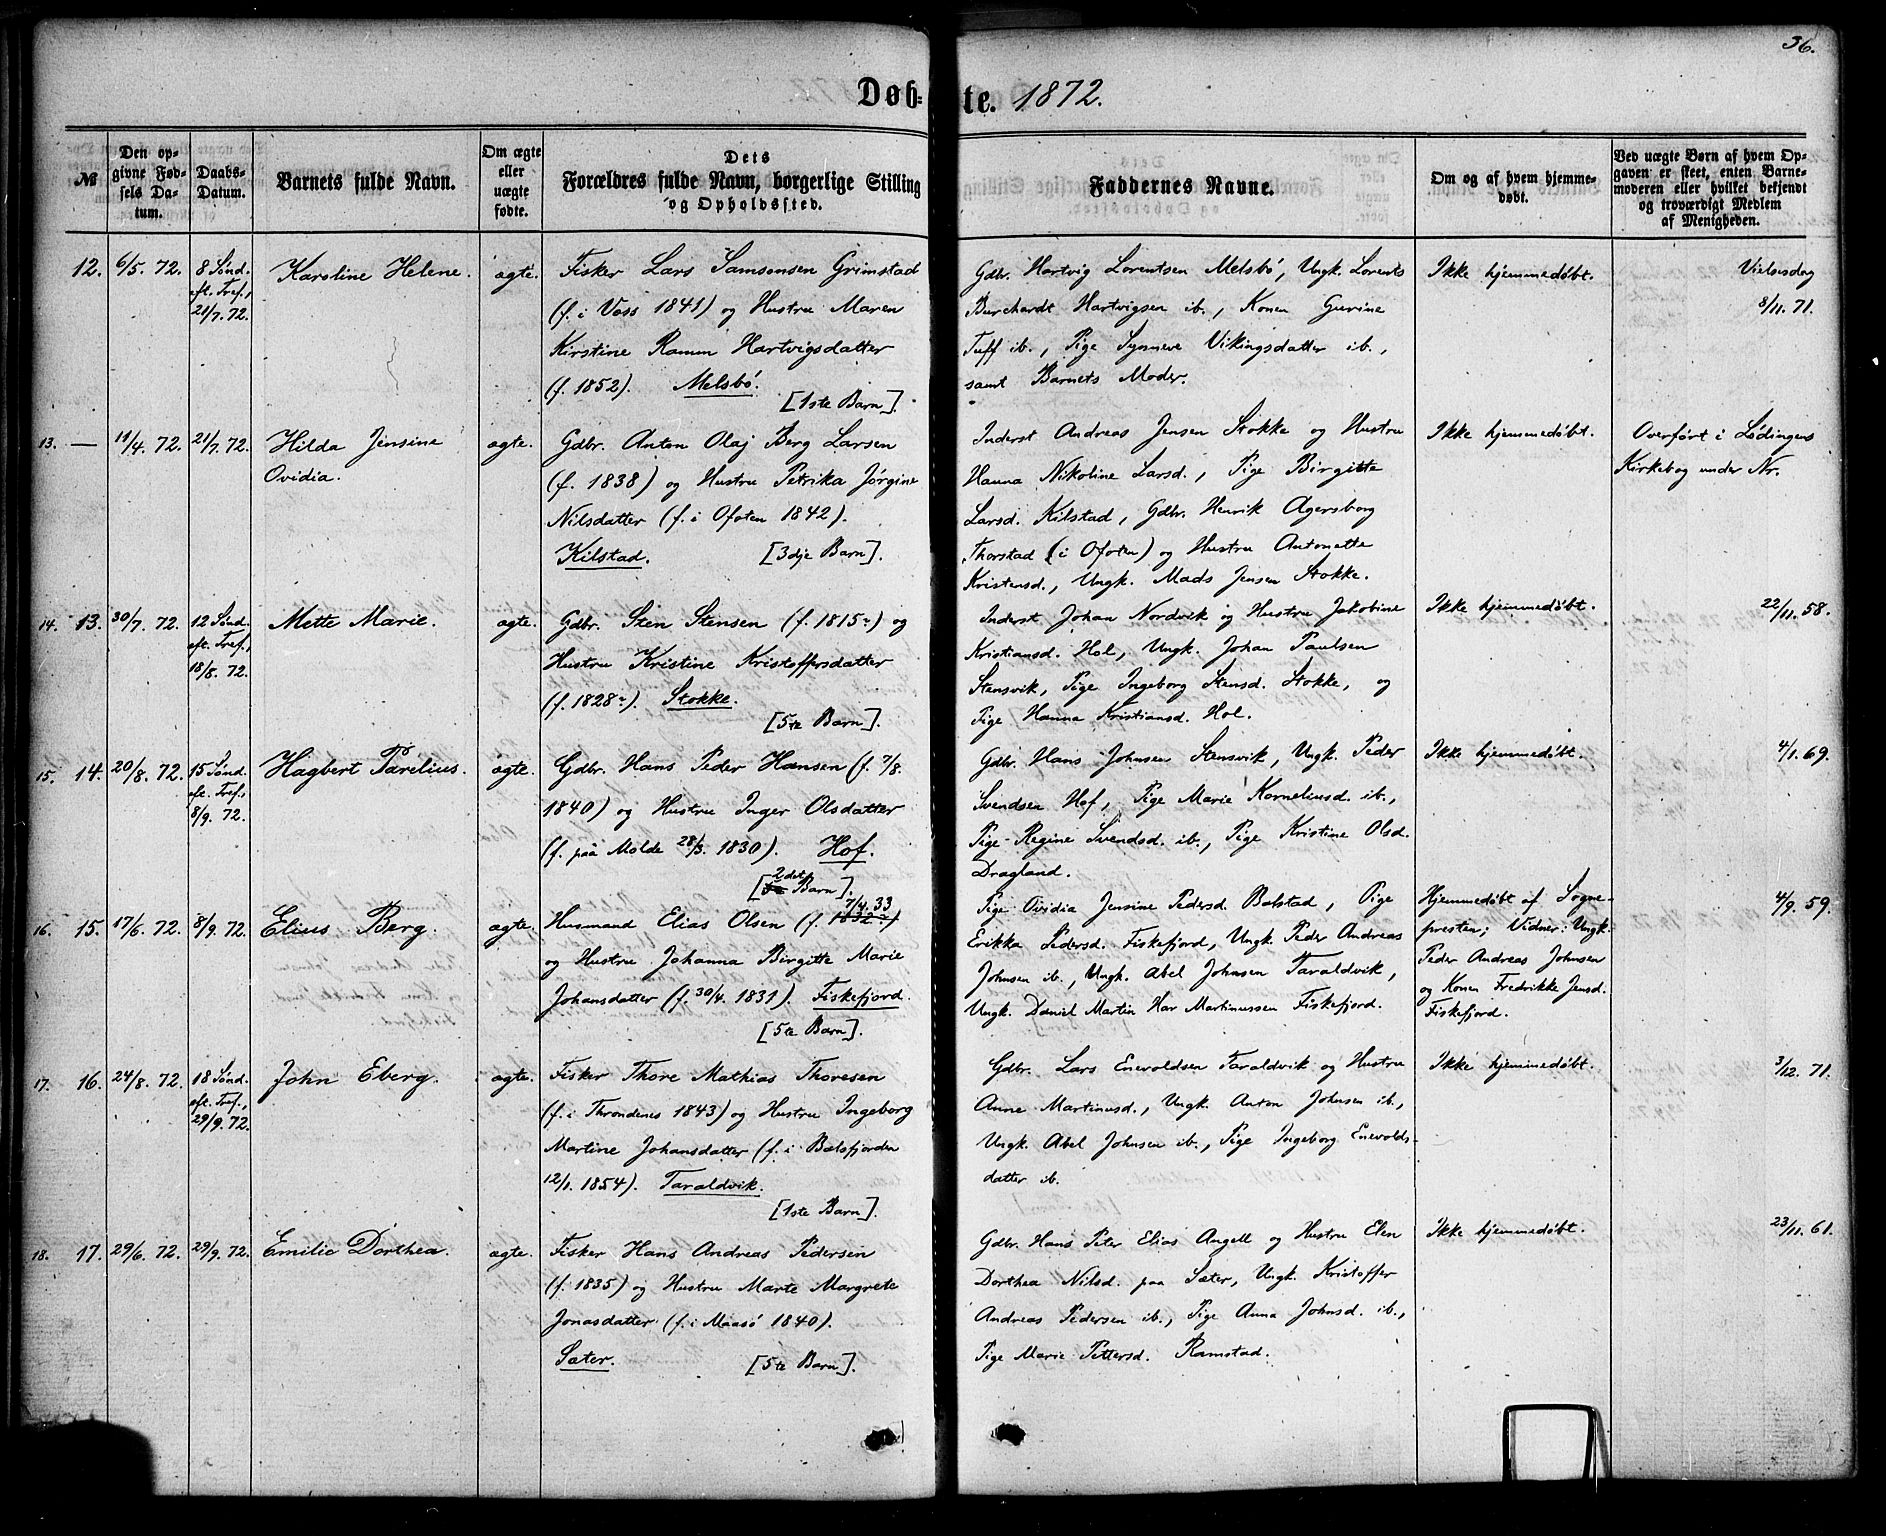 36.
Døb-te. 1872.
№
Den op-
givne Fød-
sels Da-
tum.
Daabs-
Datum.
Barnets fulde Navn.
Om ægte
eller
uægte
fødte.
Dets
Forældres fulde Navn, borgerlige Stilling
og Opholdssted.
Faddernes Navne.
Om og af hvem hjemme-
døbt.
Ved uægte Børn af hvem Op-
gaven er skeet, enten Barne-
moderen eller hvilket bekjendt
og troværdigt Medlem
af Menigheden.
12.
6/5. 72.
8 Sønd.
eft. Tref.,
21/7. 72.
Karoline Helene.
ægte.
Fisker Lars Samsonsen Grimstad
(f. i Voss 1841) og Hustru Maren
Kirstine Ramm Hartvigsdatter
(f. 1852). Melsbö.
[1ste Barn].
Gdbr. Hartvig Lorentsen Melsbö, Ungk. Lorents
Burchardt Hartvigsen ib., Konen Gurine
Tuff ib., Pige Synneve Vikingsdatter ib.,
samt Barnets Moder.
Ikke hjemmedøbt.
Vielsesdag
8/11. 71.
13. —
11/4. 72.
21/7. 72.
Hilda Jensine
Ovidia.
ægte.
Gdbr. Anton Olaj Berg Larsen
(f. 1838) og Hustru Petrika Jörgine
Nilsdatter (f. i Ofoten 1842).
Kilstad. [3dje Barn].
Inderst Andreas Jensen Stokke og Hustru
Hanna Nikoline Larsd., Pige Birgitte
Larsd. Kilstad, Gdbr. Henrik Agersborg
Thorstad (i Ofoten) og Hustru Antonette
Kristensd., Ungk. Mads Jensen Stokke.
Ikke hjemmedøbt.
Overført i Lödingens
Kirkebog under Nr.
14. 13.
30/7. 72.
12 Sønd.
eft. Tref.,
18/8. 72.
Mette Marie.
ægte.
Gdbr. Sten Stensen (f. 1815) og
Hustru Kristine Kristoffersdatter
(f. 1828). Stokke.
[5te Barn].
Inderst Johan Nordvik og Hustru Jakobine
Kristiansd. Hol, Ungk. Johan Paulsen
Stensvik, Pige Ingeborg Stensd. Stokke, og
Pige Hanna Kristiansd. Hol.
Ikke hjemmedøbt.
22/11. 58.
15. 14.
20/8. 72.
15 Sønd.
eft. Tref.,
8/9. 72.
Hagbert Parelius.
ægte.
Gdbr. Hans Peder Hansen (f. 7/8.
1840) og Hustru Inger Olsdatter
(f. paa Molde 28/3. 1830). Hof.
[2det Barn].
Gdbr. Hans Johnsen Stensvik, Ungk. Peder
Svendsen Hof, Pige Marie Korneliusd. ib.,
Pige Regine Svendsd. ib., Pige Kristine Olsd.
Dragland.
Ikke hjemmedøbt.
4/1. 69.
16. 15.
17/6. 72.
8/9. 72.
Elius Berg.
ægte.
7/4. 33
Husmand Elias Olsen (f. 1832)
og Hustru Johanna Birgitte Marie
Johansdatter (f. 30/4. 1831). Fiskefjord.
[5te Barn].
Pige Ovidia Jensine Pedersd. Bolstad, Pige
Erikka Pedersd. Fiskefjord, Ungk. Peder Andreas
Johnsen ib., Ungk. Abel Johnsen Taraldvik,
Ungk. Daniel Martin Har Martinussen Fiskefjord.
Hjemmedøbt af Sogne-
presten; Vidner: Ungk.
Peder Andreas Johnsen
og Konen Fredrikke Jensd.
Fiskefjord.
4/9. 59.
17. 16.
24/8. 72.
18 Sønd.
eft. Tref.,
29/9. 72.
John Eberg.
ægte.
Fisker Thore Mathias Thoresen
(f. i Throndenes 1843) og Hustru Ingeborg
Martine Johansdatter (f. i Balsfjorden
12/1. 1854). Taraldvik.
[1ste Barn].
Gdbr. Lars Enevoldsen Taraldvik og Hustru
Anne Martinusd., Ungk. Anton Johnsen ib.,
Ungk. Abel Johnsen ib., Pige Ingeborg Enevolds-
datter ib.
Ikke hjemmedøbt.
3/12. 71.
18. 17.
29/6. 72.
29/9. 72.
Emilie Dorthea.
ægte.
Fisker Hans Andreas Pedersen
(f. 1835) og Hustru Marte Margrete
Jonasdatter (f. i Maasö 1840).
Sæter. [5te Barn].
Gdbr. Hans Peter Elias Angell og Hustru Elen
Dorthea Nilsd. paa Sæter, Ungk. Kristoffer
Andreas Pedersen ib., Pige Anna Johnsd. ib.,
Pige Marie Pettersd. Ramstad.
Ikke hjemmedøbt.
23/11. 61.